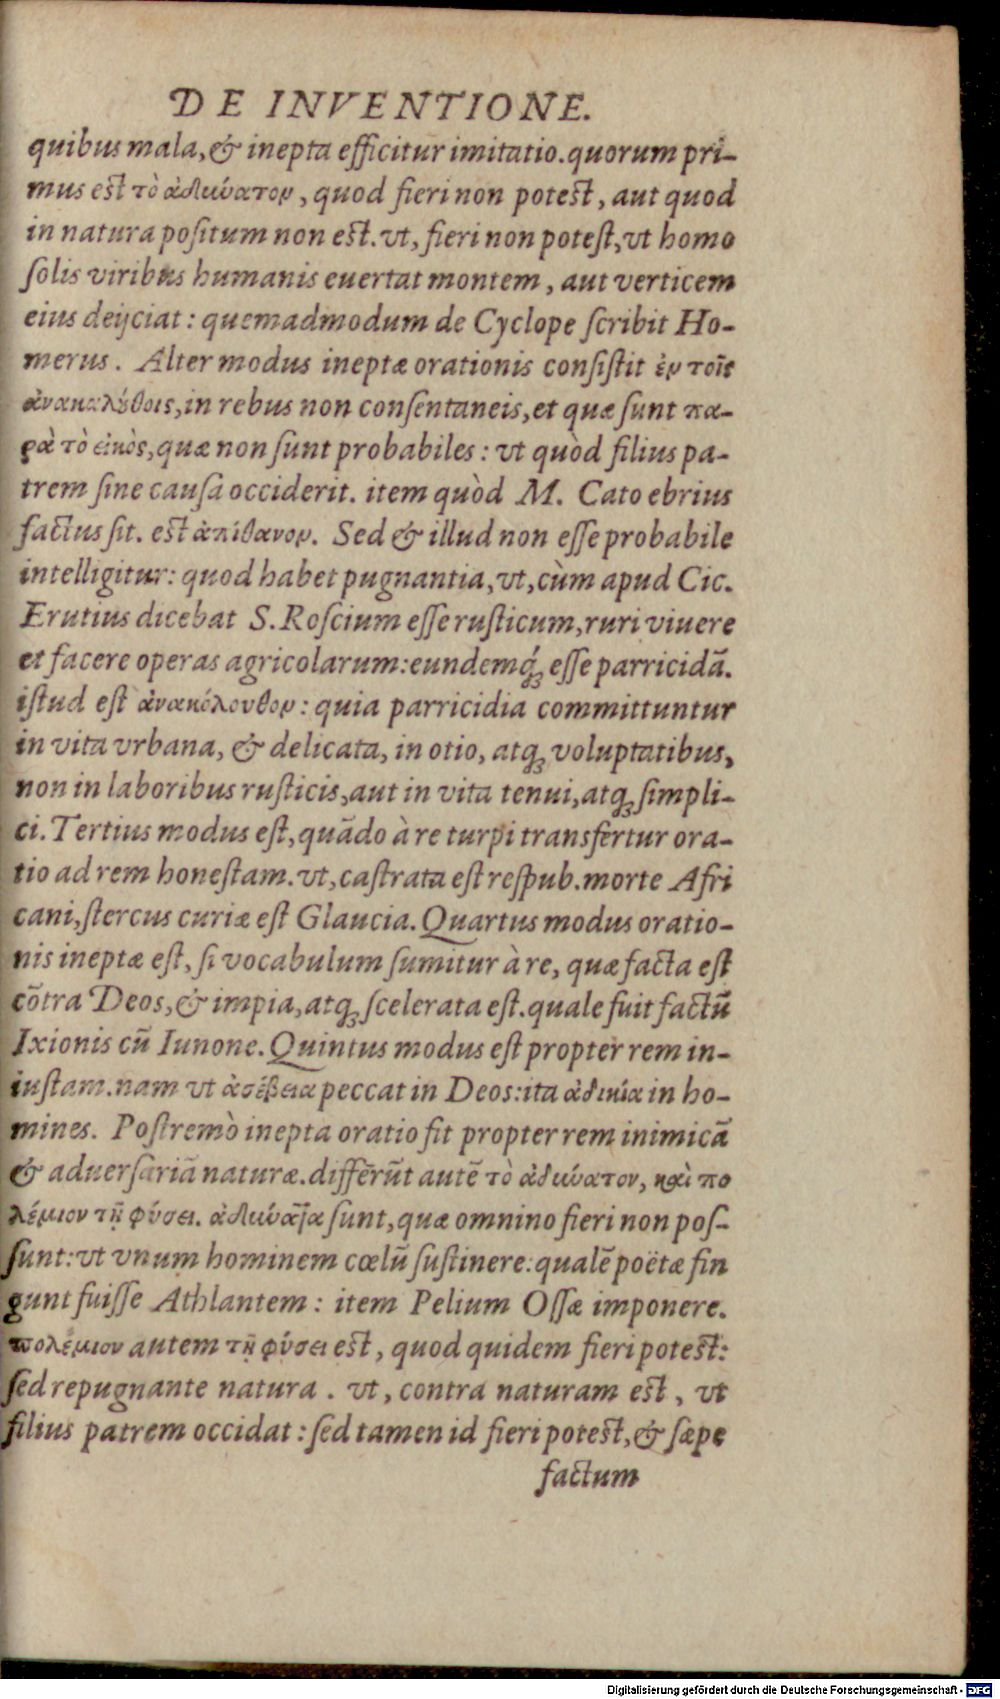 DE INVENTIONE.
quibus mala, & inepta efficitur imitatio. quorum pri-
mus est τὸ ἀδιύυατον, quod fieri non potest, aut quod
in natura positum non est. vt, fieri non potest, vt homo
solis viribus humanis euertat montem, aut verticem
eius deijciat: quemadmodum de Cyclope scribit Ho-
merus. Alter modus ineptæ orationis consistit ἐν τοῖς
ἀνακαλύθοις, in rebus non consentaneis, et quæ sunt πα-
ρὰ τὸ εἰκὸς, quæ non sunt probabiles: vt quòd filius pa-
trem sine causa occiderit. item quòd M. Cato ebrius
factus sit. est ἀπίθανον. Sed & illud non esse probabile
intelligitur: quod habet pugnantia, vt, cùm apud Cic.
Erutius dicebat S. Roscium esse rusticum, ruri viuere
et facere operas agricolarum: eundemq́ue esse parricidã.
istud est ἀνακόλουθον: quia parricidia committuntur
in vita vrbana, & delicata, in otio, atq; voluptatibus,
non in laboribus rusticis, aut in vita tenui, atq; simpli-
ci. Tertius modus est, quãdo à re turpi transfertur ora-
tio ad rem honestam. vt, castrata est respub. morte Afri
cani, stercus curiæ est Glaucia. Quartus modus oratio-
nis ineptæ est, si vocabulum sumitur à re, quæ facta est
cõtra Deos, & impia, atq; scelerata est. quale fuit factũ
Ixionis cũ Iunone. Quintus modus est propter rem in-
iustam. nam vt ἀσέβεια peccat in Deos: ita ἀδικία in ho-
mines. Postremò inepta oratio fit propter rem inimicã
& aduersariã naturæ. differũt autẽ τὸ ἀδιύυατον, καὶ πο
λέμιον τῇ φύσει. ἀδιύυατα sunt, quæ omnino fieri non pos-
sunt: vt vnum hominem cœlũ sustinere: qualẽ poëtæ fin
gunt fuisse Athlantem: item Pelium Ossæ imponere.
πολέμιον autem τῇ φύσει est, quod quidem fieri potest:
sed repugnante natura. vt, contra naturam est, vt
filius patrem occidat: sed tamen id fieri potest, & sæpe
factum
Digitalisierung gefördert durch die Deutsche Forschungsgemeinschaft - DFG